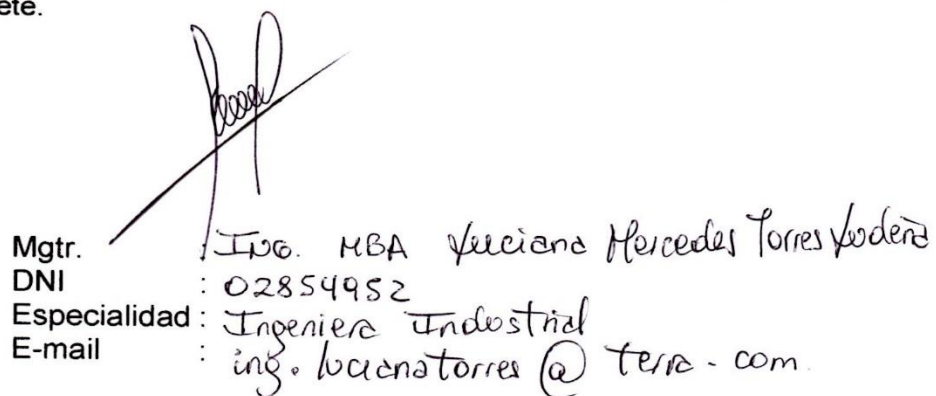 ete.
Mgtr. : ING. MBA Luciana Mercedes Torres Ludeña
DNI : 02854952
Especialidad : Ingeniera Industrial
E-mail : ing. lucianatorres @ terra - com